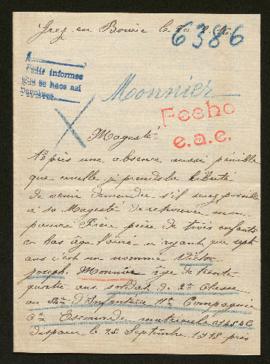 Grez en Bouère le
6386
A
Pedir informes
que se hace así
Monnier
Fecho
e.a.c.
Majesté
Après une absence aussi pénible
que cruelle je prends la liberté
de venir demander s'il serez possible
à sa Majesté de retrouver mon
pauvre Frère père de trois enfants
en bas âge
ans c'est un nommé Victor
Joseph Monnier âge de trente
quatre ans soldat de 2e Classe
au d'Infanterie 11e Compagnie
matricule
disparu le 28 Septembre 1915 près